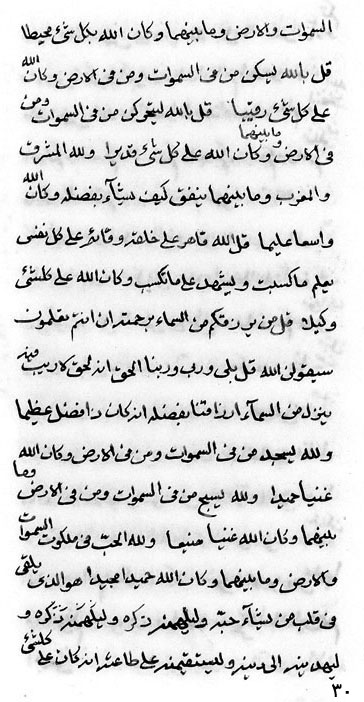 السموات والارض وما بينهما وكان الله بكل شئ محيطا
قل بالله يسكن من فى السموات ومن فى الارض وكان الله
على كل شئ رقيبا قل بالله يتحركن من فى السموات ومن
فى الارض وما بينهما وكان الله على كل شئ قديرا ولله المشرق
والمغرب وما بينهما ينفق كيف يشآء بفضله وكان الله
واسعا عليما قل الله قاهر على خلقه وقائم على كل نفس
يعلم ما كسبت ويشهد على ما تكسب وكان الله على كلشئ
وكيلا قل من يرزقكم من السماء برحمته ان انتم تعلمون
سيقولن الله قل بلى ورب وربنا الحق انه لحق لا ريب فيه
ينزل من السمآء ارزاقنا بفضله انه كان ذا فضل عظيما
ولله يسجد من فى السموات ومن فى الارض وكان الله
غنيا حميدا ولله يسبح من فى السموات ومن فى الارض وما
بينهما وكان الله غنيا منيعا ولله الحب فى ملكوت السموات
والارض وما بينهما وكان الله حميدا مجيدا هو الذى يلقى
فى قلب من يشآء حبه وليلهمنه ذكره وليلهمنه ذكره و
ليهدينه الى دينه وليستقيمنه على طاعته انه كان على كلشئ
٣٠